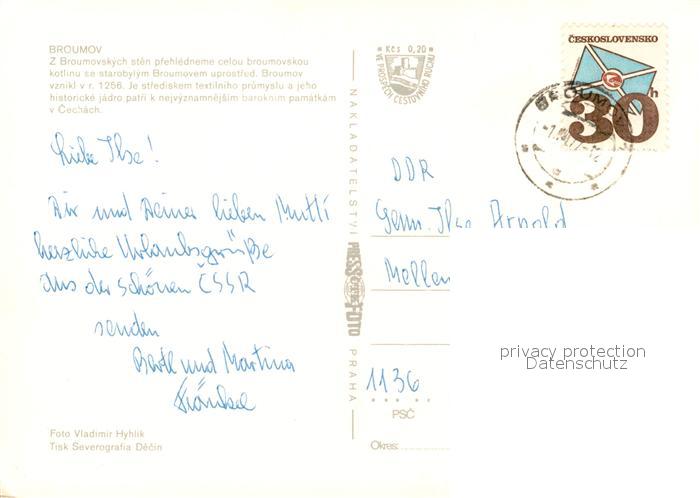 BROUMOV
Z Broumovských stěn přehlédneme celou broumovskou
kotlinu se starobylým Broumovem uprostřed. Broumov
vznikl v r. 1256. Je střediskem textilního průmyslu a jeho
historické jádro patří k nejvýznamnějším barokním památkám
v Čechách.
Liebe Ilse!
Dir und Deiner lieben Mutti
herzliche Urlaubsgrüße
aus der schönen ČSSR
senden
und Martina
Foto Vladimir Hyhlík
Tisk Severografia Děčín
NAKLADATELSTVÍ
PRESSFOTO
PRAHA
Kčs 0,20
VE PROSPĚCH CESTOVNÍHO RUCHU
ČESKOSLOVENSKO
30h
BROUMOV
DDR
Genn. Ilse Arnold
Mellen
1136
PSČ
Okres:
privacy protection
Datenschutz